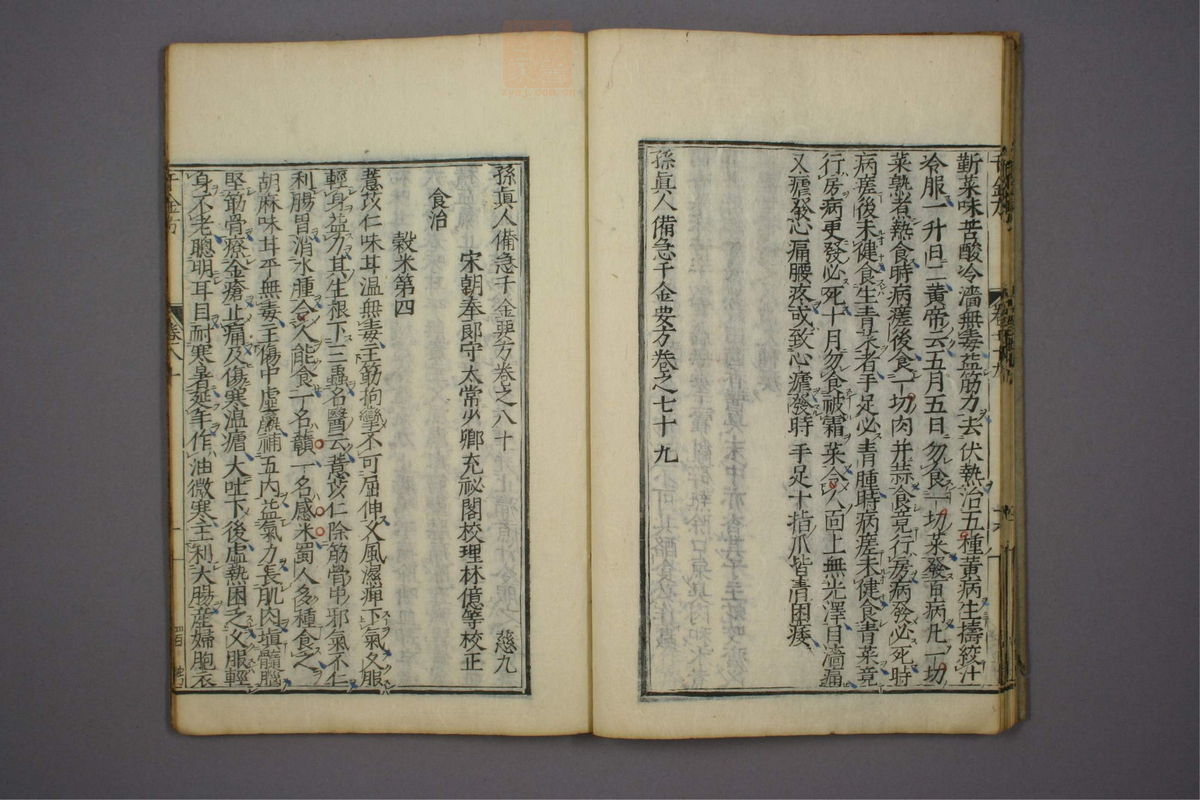 蘄菜味苦酸冷濇無毒益筋力去伏熱治五種黃病生擣絞汁
冷服一升日二黃帝云五月五日勿食一切菜發百病凡一切
菜熟煮熱食時病瘥後食一切肉并蒜食竟行房病發必死時
病瘥後未健食生青菜者手足必青腫時病瘥未健食青菜竟
行房病更發必死十月勿食被霜菜令人面上無光澤目濇痛
又瘧發心痛腰疼或致心瘧發時手足十指爪皆青困痿
孫真人備急千金要方卷之七十九
孫真人備急千金要方卷之八十 慈九
宋朝奉郎守太常少卿充祕閣校理林億等校正
食治
穀米第四
薏苡仁味甘溫無毒主筋拘攣不可屈伸久風濕痺下氣久服
輕身益力其生根下三蟲名醫云薏苡仁除筋骨中邪氣不仁
利腸胃消水腫令人能食一名䕬一名感米蜀人多種食之
胡麻味甘平無毒主傷中虛羸補五內益氣力長肌肉填髓腦
堅筋骨療金瘡止痛及傷寒溫瘧大吐下後虛熱困乏久服輕
身不老聰明耳目耐寒暑延年作油微寒主利大腸產婦胞衣
千金方
卷八十